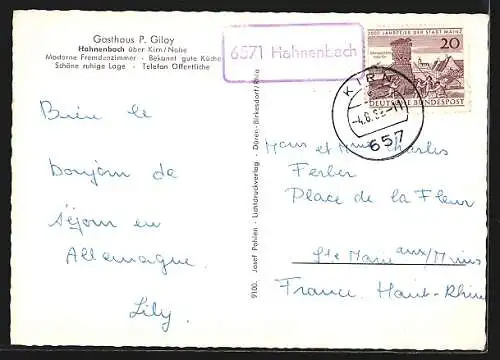 Gasthaus P. Giloy
Hahnenbach über Kirn/Nahe
Moderne Fremdenzimmer - Bekannt gute Küche
Schöne ruhige Lage - Telefon Öffentliche
6571 Hahnenbach
2000 JAHRFEIER DER STADT MAINZ
20
DEUTSCHE BUNDESPOST
KIRN
657
9100. Josef Pohlen · Lichtdruckverlag · Düren-Birkesdorf/Rhld
Bien le
Bonjour de
séjour en
Allemagne.
Lily.
et Charles
Ferber
Place de la Fleur
Ste Marie aux/Mines
France Haut-Rhin